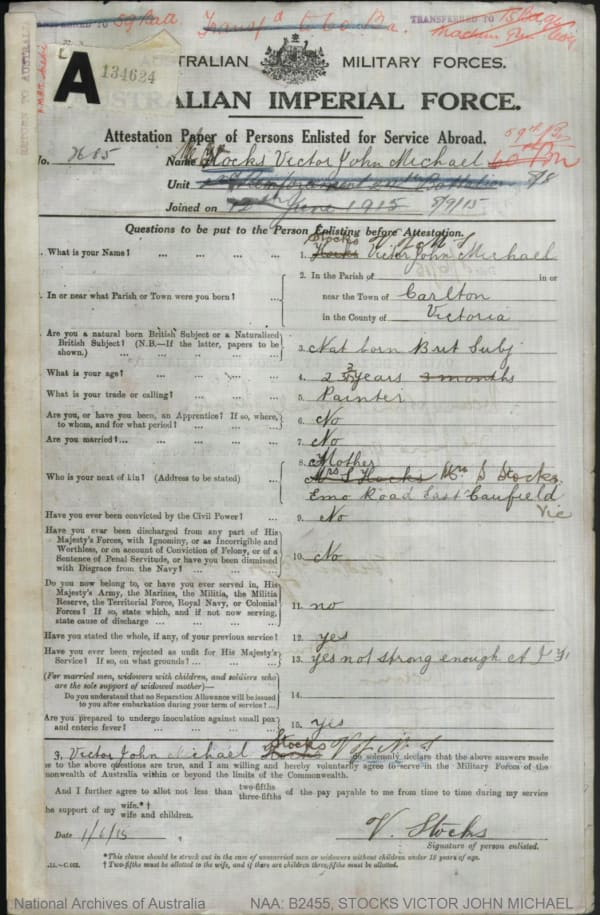 TRANSFERRED TO 59 Batt Transfd to 60 Bn. TRANSFERRED TO 15 Bde
Machine Gun Coy
RETURN TO AUSTRALIA
A
134624
AUSTRALIAN MILITARY FORCES.
AUSTRALIAN IMPERIAL FORCE.
Attestation Paper of Persons Enlisted for Service Abroad.
No. Name Stocks Victor John Michael 60 Bn 59th Bn
Unit
Joined on 12th June 1915 8/7/15
Questions to be put to the Person Enlisting before Attestation.
Stocks V. J. M. S
1. What is your Name? ... 1. Victor John Michael
2. In or near what Parish or Town were you born? 2. In the Parish of in or
near the Town of Carlton
in the County of Victoria
Are you a natural born British Subject or a Naturalized
British Subject? (N.B.—If the latter, papers to be
shown.) 3. Nat born Brit Subj
What is your age? ... 4. years 3 months
What is your trade or calling? ... 5. Painter
Are you, or have you been, an Apprentice? If so, where,
to whom, and for what period? ... 6. No
Are you married?... 7. No
8. Mother
Who is your next of kin? (Address to be stated) ... Mrs S Stocks
Emo Road East Caufield
Vic
Have you ever been convicted by the Civil Power? ... 9. No
Have you ever been discharged from any part of His
Majesty's Forces, with Ignominy, or as Incorrigible and
Worthless, or on account of Conviction of Felony, or of a
Sentence of Penal Servitude, or have you been dismissed
with Disgrace from the Navy? ... 10. No
Do you now belong to, or have you ever served in, His
Majesty's Army, the Marines, the Militia, the Militia
Reserve, the Territorial Force, Royal Navy, or Colonial
Forces? If so, state which, and if not now serving,
state cause of discharge ... 11. no
Have you stated the whole, if any, of your previous service? 12. yes
Have you ever been rejected as unfit for His Majesty's
Service? If so, on what grounds? ... 13. yes not strong enough A I F
(For married men, widowers with children, and soldiers who
are the sole support of widowed mother)—
Do you understand that no Separation Allowance will be issued
to you after embarkation during your term of service? ... 14.
Are you prepared to undergo inoculation against small pox
and enteric fever? ... 15. yes
I, Victor John Michael Stocks V. J. M. S do solemnly declare that the above answers made
me to the above questions are true, and I am willing and hereby voluntarily agree to serve in the Military Forces of the
Commonwealth of Australia within or beyond the limits of the Commonwealth.
And I further agree to allot not less than two-fifths three-fifths of the pay payable to me from time to time during my service
the support of my wife.*†
wife and children.
Date 1/6/15 V. Stocks
Signature of person enlisted.
*This clause should be struck out in the case of unmarried men or widowers without children under 18 years of age.
† Two-fifths must be allotted to the wife, and if there are children three-fifths must be allotted.
National Archives of Australia NAA: B2455, STOCKS VICTOR JOHN MICHAEL